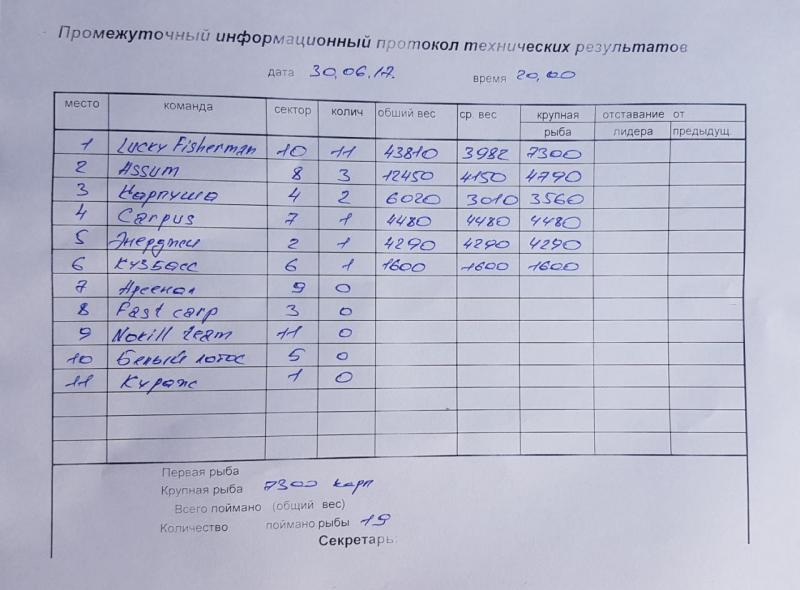 Промежуточный информационный протокол технических результатов
дата 30.06.17. время 20,00
место команда сектор колич обший вес ср. вес крупная рыба отставание от лидера предыдущ.
1 Lucky Fisherman 10 11 43810 3982 7300
2 Assum 8 3 12450 4150 4790
3 Карпуша 4 2 6020 3010 3560
4 Carpus 7 1 4480 4480 4480
5 Энерджи 2 1 4290 4290 4290
6 Кузбасс 6 1 1600 1600 1600
7 Арсенал 9 0
8 Fast carp 3 0
9 Nokill team 11 0
10 Белый лотос 5 0
11 Кураж 1 0
Первая рыба
Крупная рыба 7300 карп
Всего поймано (общий вес)
Количество поймано рыбы 19
Секретарь: